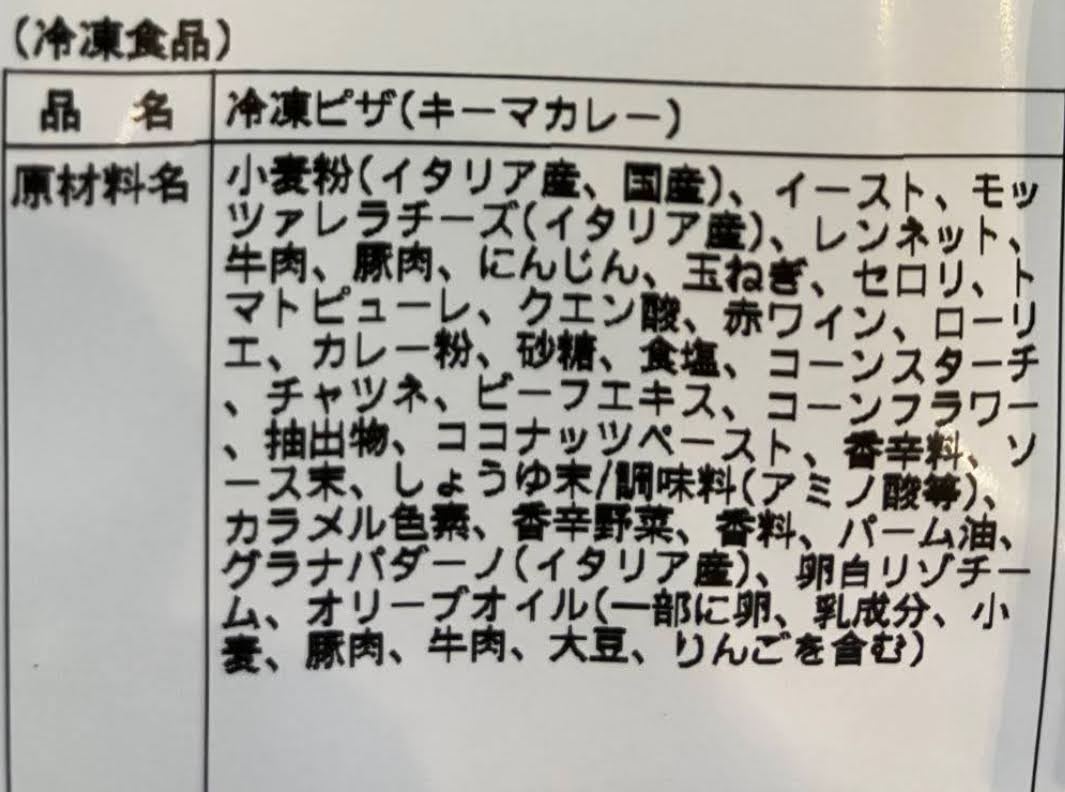 (冷凍食品)
品 名
冷凍ピザ(キーマカレー)
原材料名
小麦粉(イタリア産、国産)、イースト、モッ
ツァレラチーズ(イタリア産)、レンネット、
牛肉、豚肉、にんじん、玉ねぎ、セロリ、ト
マトピューレ、クエン酸、赤ワイン、ローリ
エ、カレー粉、砂糖、食塩、コーンスターチ
、チャツネ、ビーフエキス、コーンフラワー
、抽出物、ココナッツペースト、香辛料、ソ
ース末、しょうゆ末/調味料(アミノ酸等)、
カラメル色素、香辛野菜、香料、パーム油、
グラナパダーノ(イタリア産)、卵白リゾチー
ム、オリーブオイル(一部に卵、乳成分、小
麦、豚肉、牛肉、大豆、りんごを含む)